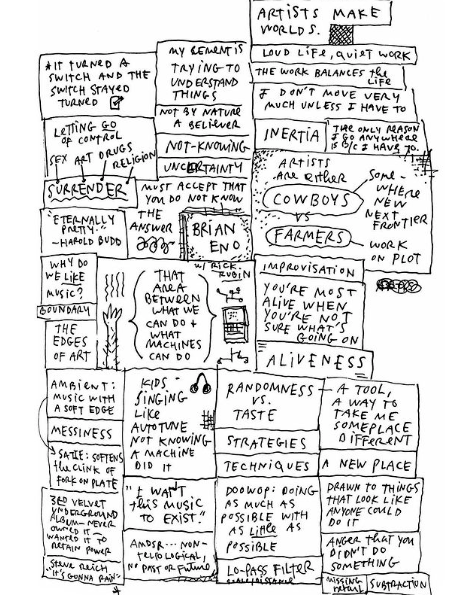 ARTISTS MAKE
WORLDS.
LOUD LIFE, QUIET WORK
THE WORK BALANCES the
LIFE
I DON'T MOVE VERY
MUCH UNLESS I HAVE TO
INERTIA
THE ONLY REASON
I GO ANYWHERE
IS B/C I HAVE TO.
★ IT TURNED A
SWITCH AND THE
SWITCH STAYED
TURNED
MY REMIT IS
TRYING TO
UNDERSTAND
THINGS
NOT BY NATURE
A BELIEVER
NOT-KNOWING
UNCERTAINTY
LETTING GO
OF CONTROL
SEX ART DRUGS
RELIGION
SURRENDER
MUST ACCEPT THAT
YOU DO NOT KNOW
THE
ANSWER
"ETERNALLY
PRETTY."
~HAROLD BUDD
BRIAN
ENO
W/ RICK
RUBIN
ARTISTS
ARE EITHER
COWBOYS
VS
FARMERS
SOME-
WHERE
NEW
NEXT
FRONTIER
WORK
ON PLOT
WHY DO
WE LIKE
MUSIC?
BOUNDARY
THE
EDGES
OF ART
THAT
AREA
BETWEEN
WHAT WE
CAN DO +
WHAT
MACHINES
CAN DO
IMPROVISATION
YOU'RE MOST
ALIVE WHEN
YOU'RE NOT
SURE WHAT'S
GOING ON
ALIVENESS
AMBIENT:
MUSIC WITH
A SOFT EDGE
MESSINESS
SATIE: SOFTENS
the CLINK OF
FORK ON PLATE
3RD VELVET
UNDERGROUND
ALBUM - NEVER
OWNED IT -
WANTED IT TO
RETAIN POWER
"STEVE REICH
IT'S GONNA RAIN"
KIDS -
SINGING
LIKE
AUTOTUNE
NOT KNOWING
A MACHINE
DID IT
"I WANT
this MUSIC
TO EXIST."
NON-
TELEOLOGICAL,
NO PAST OR FUTURE
RANDOMNESS
VS.
TASTE
STRATEGIES
TECHNIQUES
DOOWOP: DOING
AS MUCH AS
POSSIBLE WITH
AS little AS
POSSIBLE
LO-PASS FILTER
A TOOL,
A WAY TO
TAKE ME
SOMEPLACE
DIFFERENT
A NEW PLACE
DRAWN TO THINGS
THAT LOOK LIKE
ANYONE COULD
DO IT
ANGER THAT YOU
DIDN'T DO
SOMETHING
MISSING
SUBTRACTION